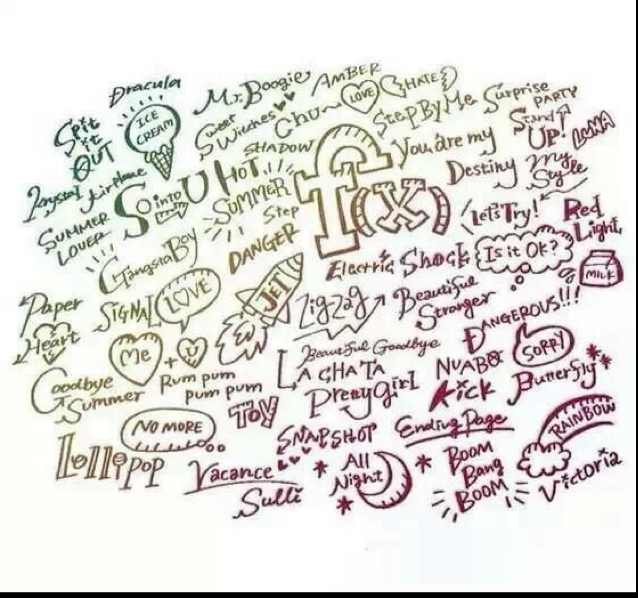 Dracula
Spit it OUT
ICE CREAM
Mr. Boogie
AMBER
LOVE
HATE
Sweet Witches
Chu~
StepByMe
Surprise PARTY
Stand UP!
LUNA
SHADOW
You are my Destiny
My Style
Krystal
Airplane
So into U
HOT SUMMER
f(x)
Let's Try!
Red Light
SUMMER LOVER
Gangsta Boy
Step
DANGER
Electric Shock
Is it OK?
MILK
Paper Heart
SIGNAL
LOVE
JET
ZigZag
Beautiful Stranger
DANGEROUS!!!
Me + U
Beautiful Goodbye
SORRY
Goodbye Summer
Rum pum pum pum
LA CHA TA
NU ABO
Pretty Girl
Kick
Butterfly
NO MORE
TOY
SNAPSHOT
Ending Page
RAINBOW
Lollipop
Vacance
All Night
BOOM Bang BOOM
Victoria
Sulli